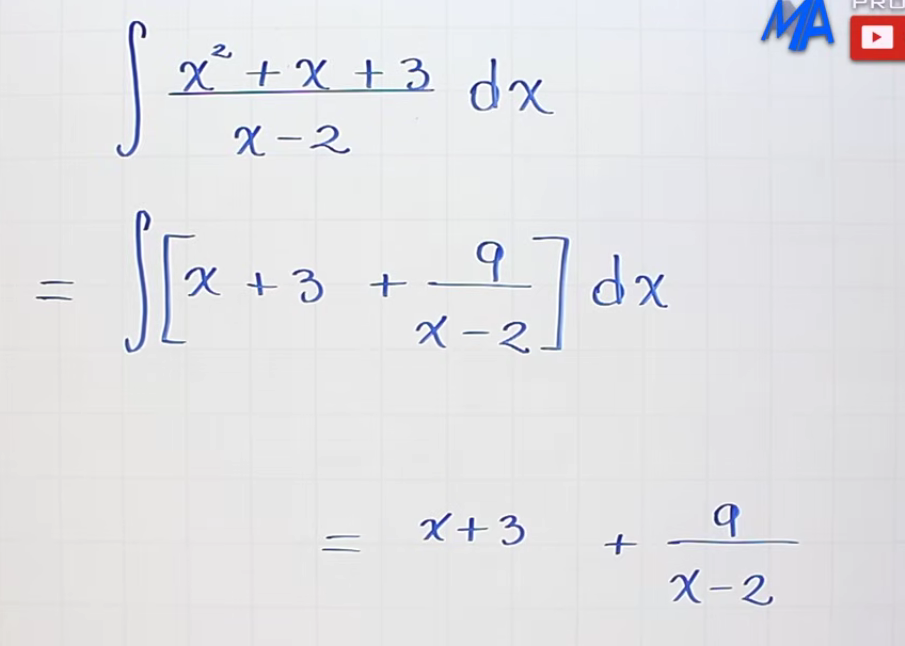 MA PRO
∫ (x² + x + 3)/(x - 2) dx
= ∫ [x + 3 + 9/(x - 2)] dx
= x + 3 + 9/(x - 2)